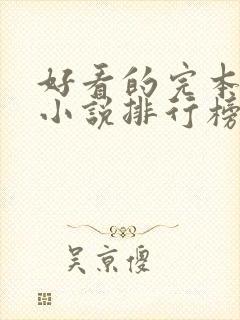 好看的完本
小说排行榜
吴京傻